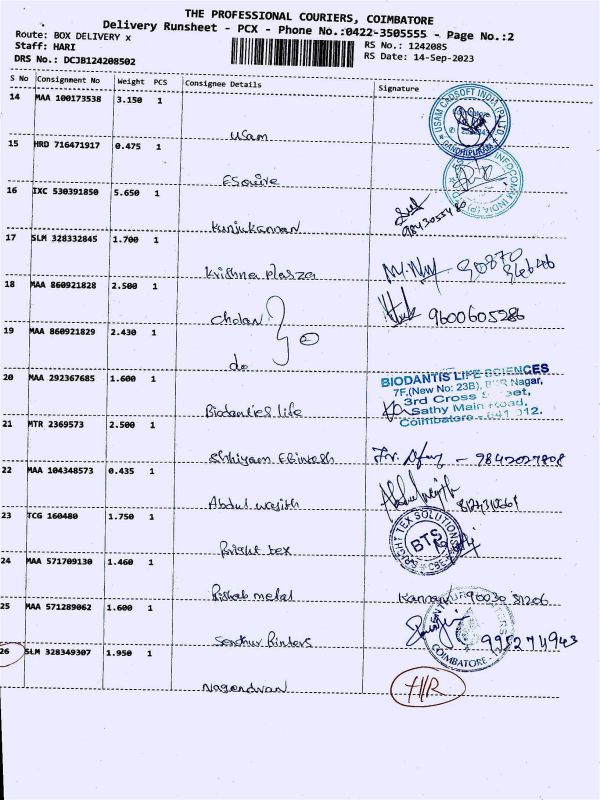 THE PROFESSIONAL COURIERS, COIMBATORE
Delivery Runsheet - PCX - Phone No.:0422-3505555 - Page No.:2
Route: BOX DELIVERY x
RS No.: 1242085
Staff: HARI
RS Date: 14-Sep-2023
DRS No.: DCJB124208502
S No Consignment No Weight PCS Consignee Details Signature
14 MAA 100173538 3.150 1
Usam
USAM CADSOFT INDIA (P) LTD
GANDHIPURAM
15 HRD 716471917 0.475 1
Esquire
INFOCOMM INDIA (P)
16 IXC 530391850 5.650 1
Kunjukannan
17 SLM 328332845 1.700 1
Krishna Plazza
18 MAA 860921828 2.500 1
Cholan
9600605286
19 MAA 860921829 2.430 1
do
2
20 MAA 292367685 1.600 1
Biodanties life
BIODANTIS LIFE SCIENCES
7F,(New No: 23B), Nagar,
3rd Cross Street,
Sathy Main Road,
Coimbatore - 641 012.
21 MTR 2369573 2.500 1
22 MAA 104348573 0.435 1
Abdul wajith
23 TCG 160480 1.750 1
Bright tex
BRIGHT TEX SOLUTIONS
BTS
CBE
24 MAA 571709130 1.460 1
25 MAA 571289062 1.600 1
COIMBATORE
26 SLM 328349307 1.950 1